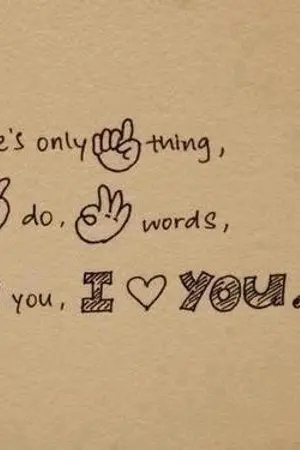 e's only thing,
do. words,
you, I ♡ YOU.